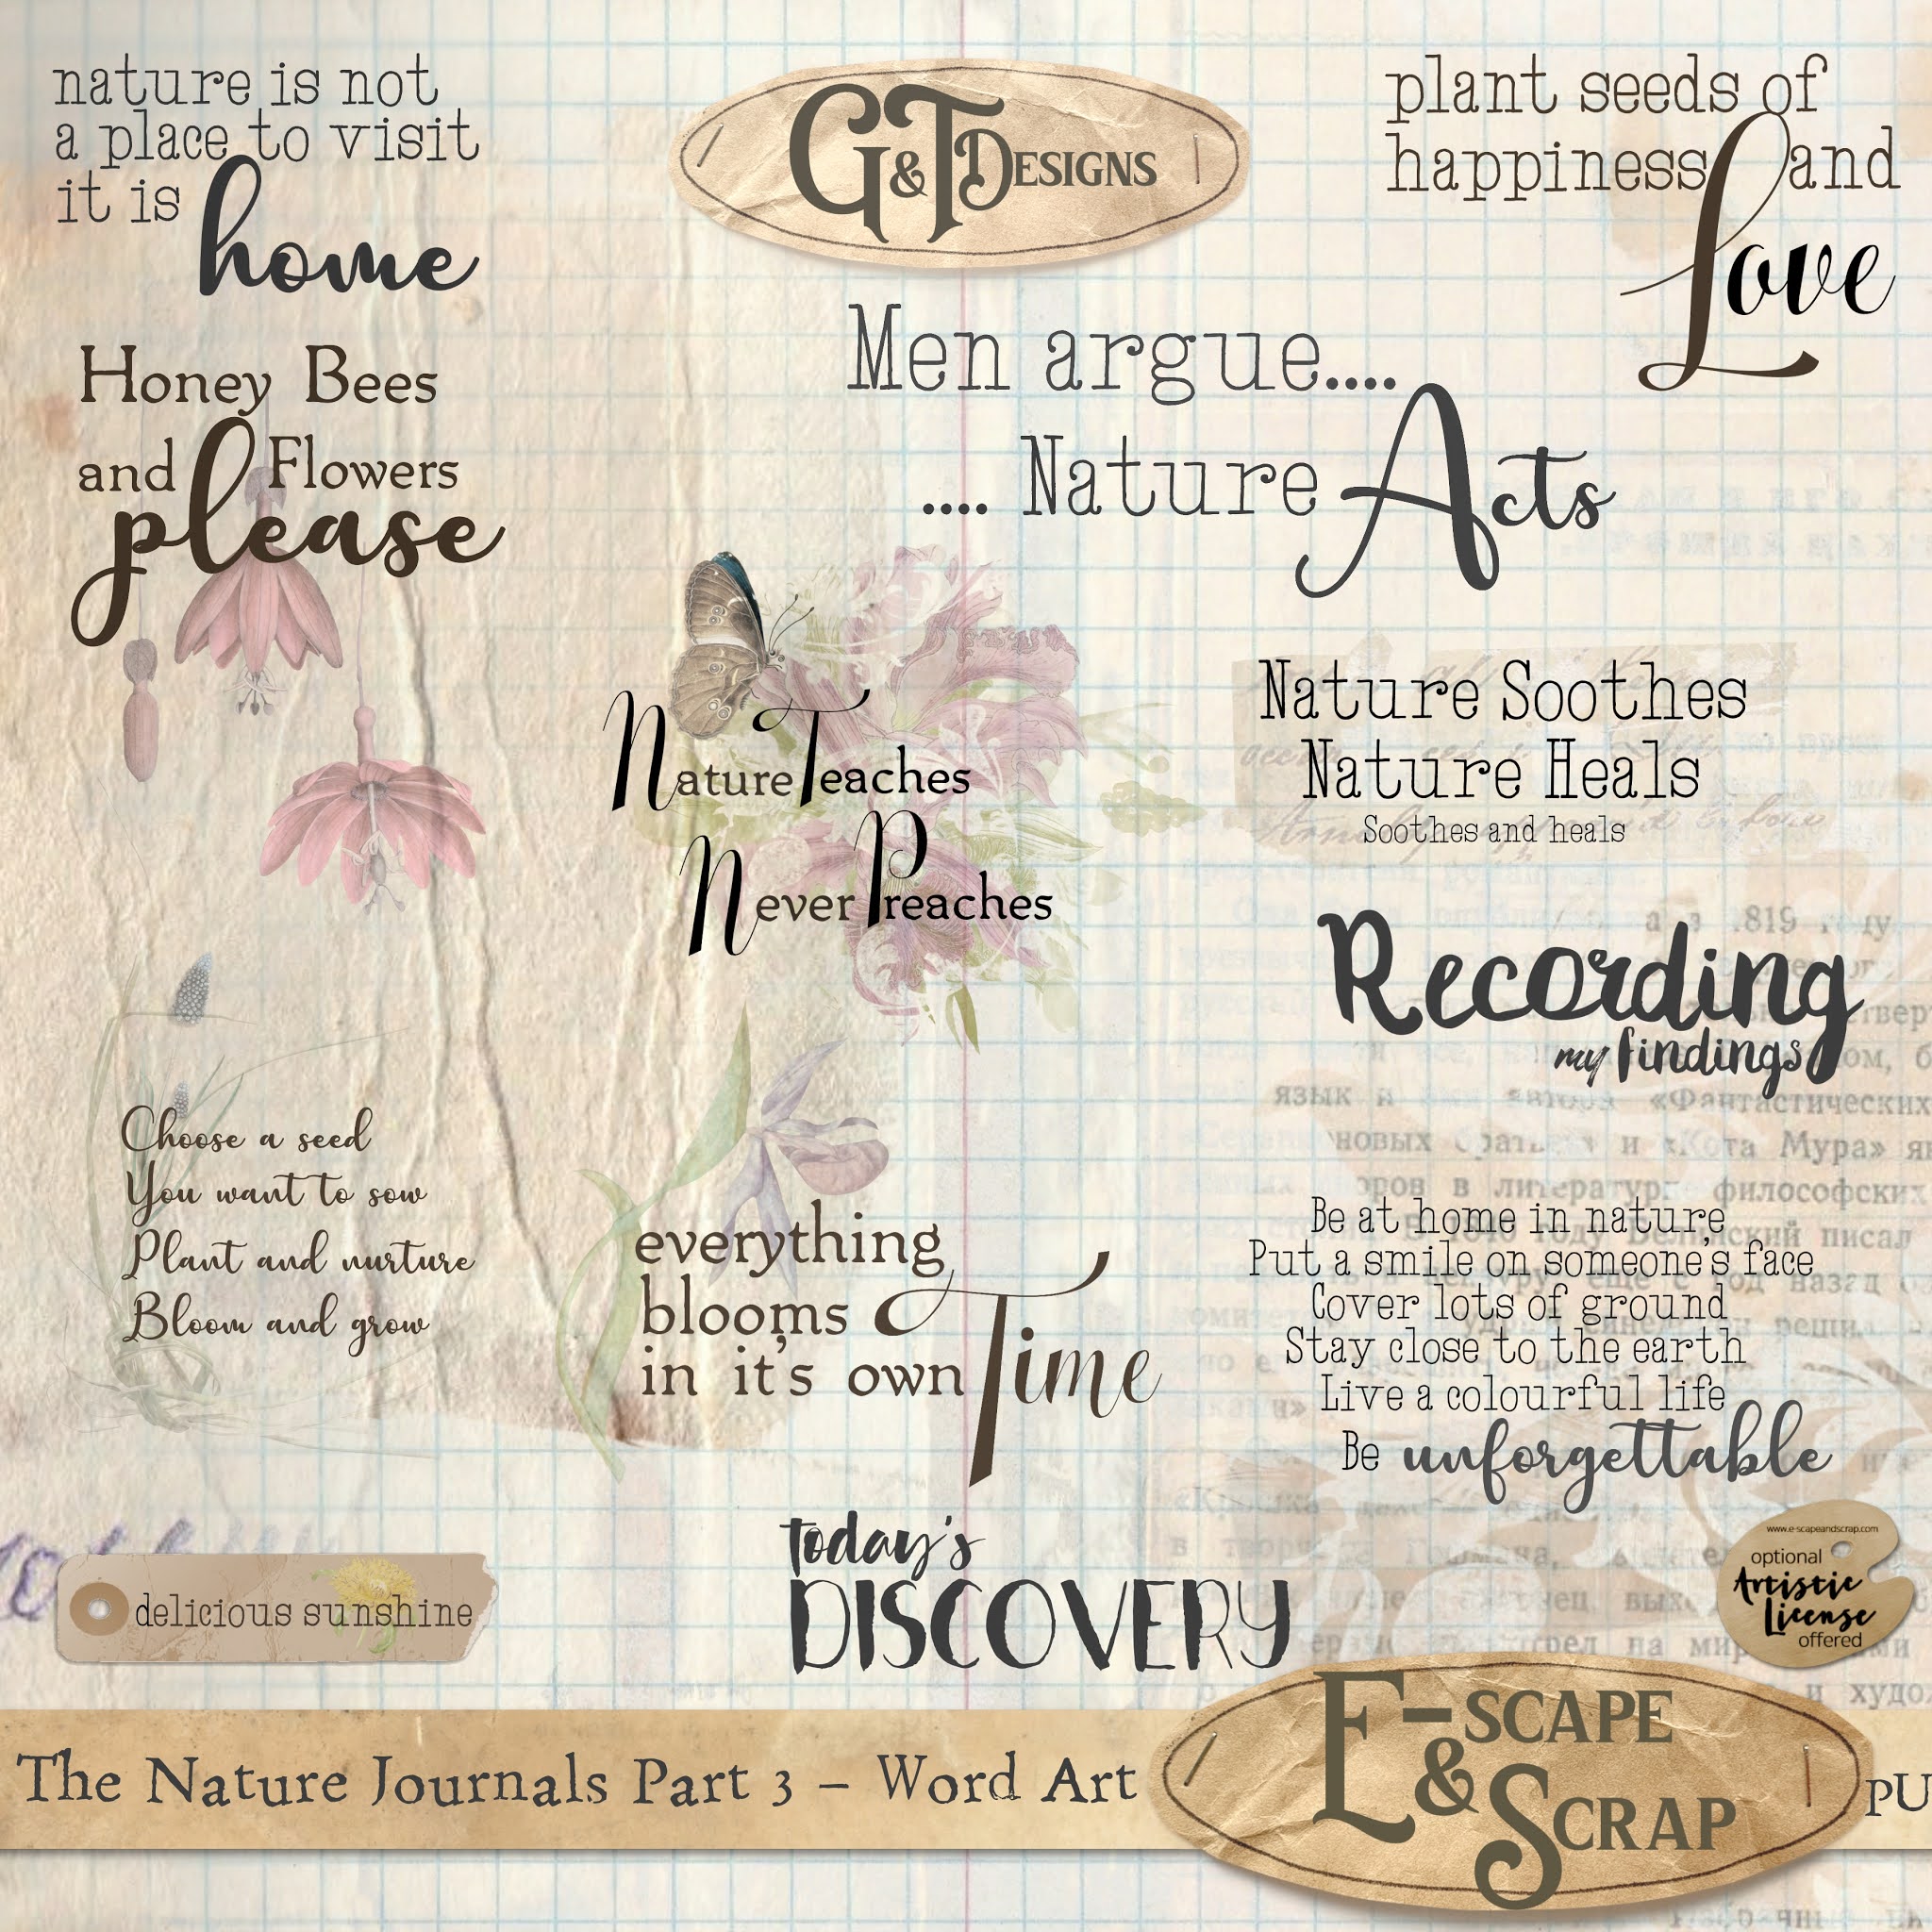 nature is not
a place to visit
it is home
G&T Designs
plant seeds of
happiness and
Love
Honey Bees
and Flowers
please
Men argue....
.... Nature Acts
Nature Teaches
Never Preaches
Nature Soothes
Nature Heals
Soothes and heals
Recording
my findings
Choose a seed
You want to sow
Plant and nurture
Bloom and grow
everything
blooms
in it's own Time
Be at home in nature,
Put a smile on someone's face
Cover lots of ground
Stay close to the earth
Live a colourful life
Be unforgettable
delicious sunshine
today's
DISCOVERY
www.e-scapeandscrap.com
optional
Artistic
License
offered
The Nature Journals Part 3 – Word Art
E-scape
& Scrap
PU
819
язык и «Фантастических
и «Кота Мура»
в философских
писал
назад
на
и